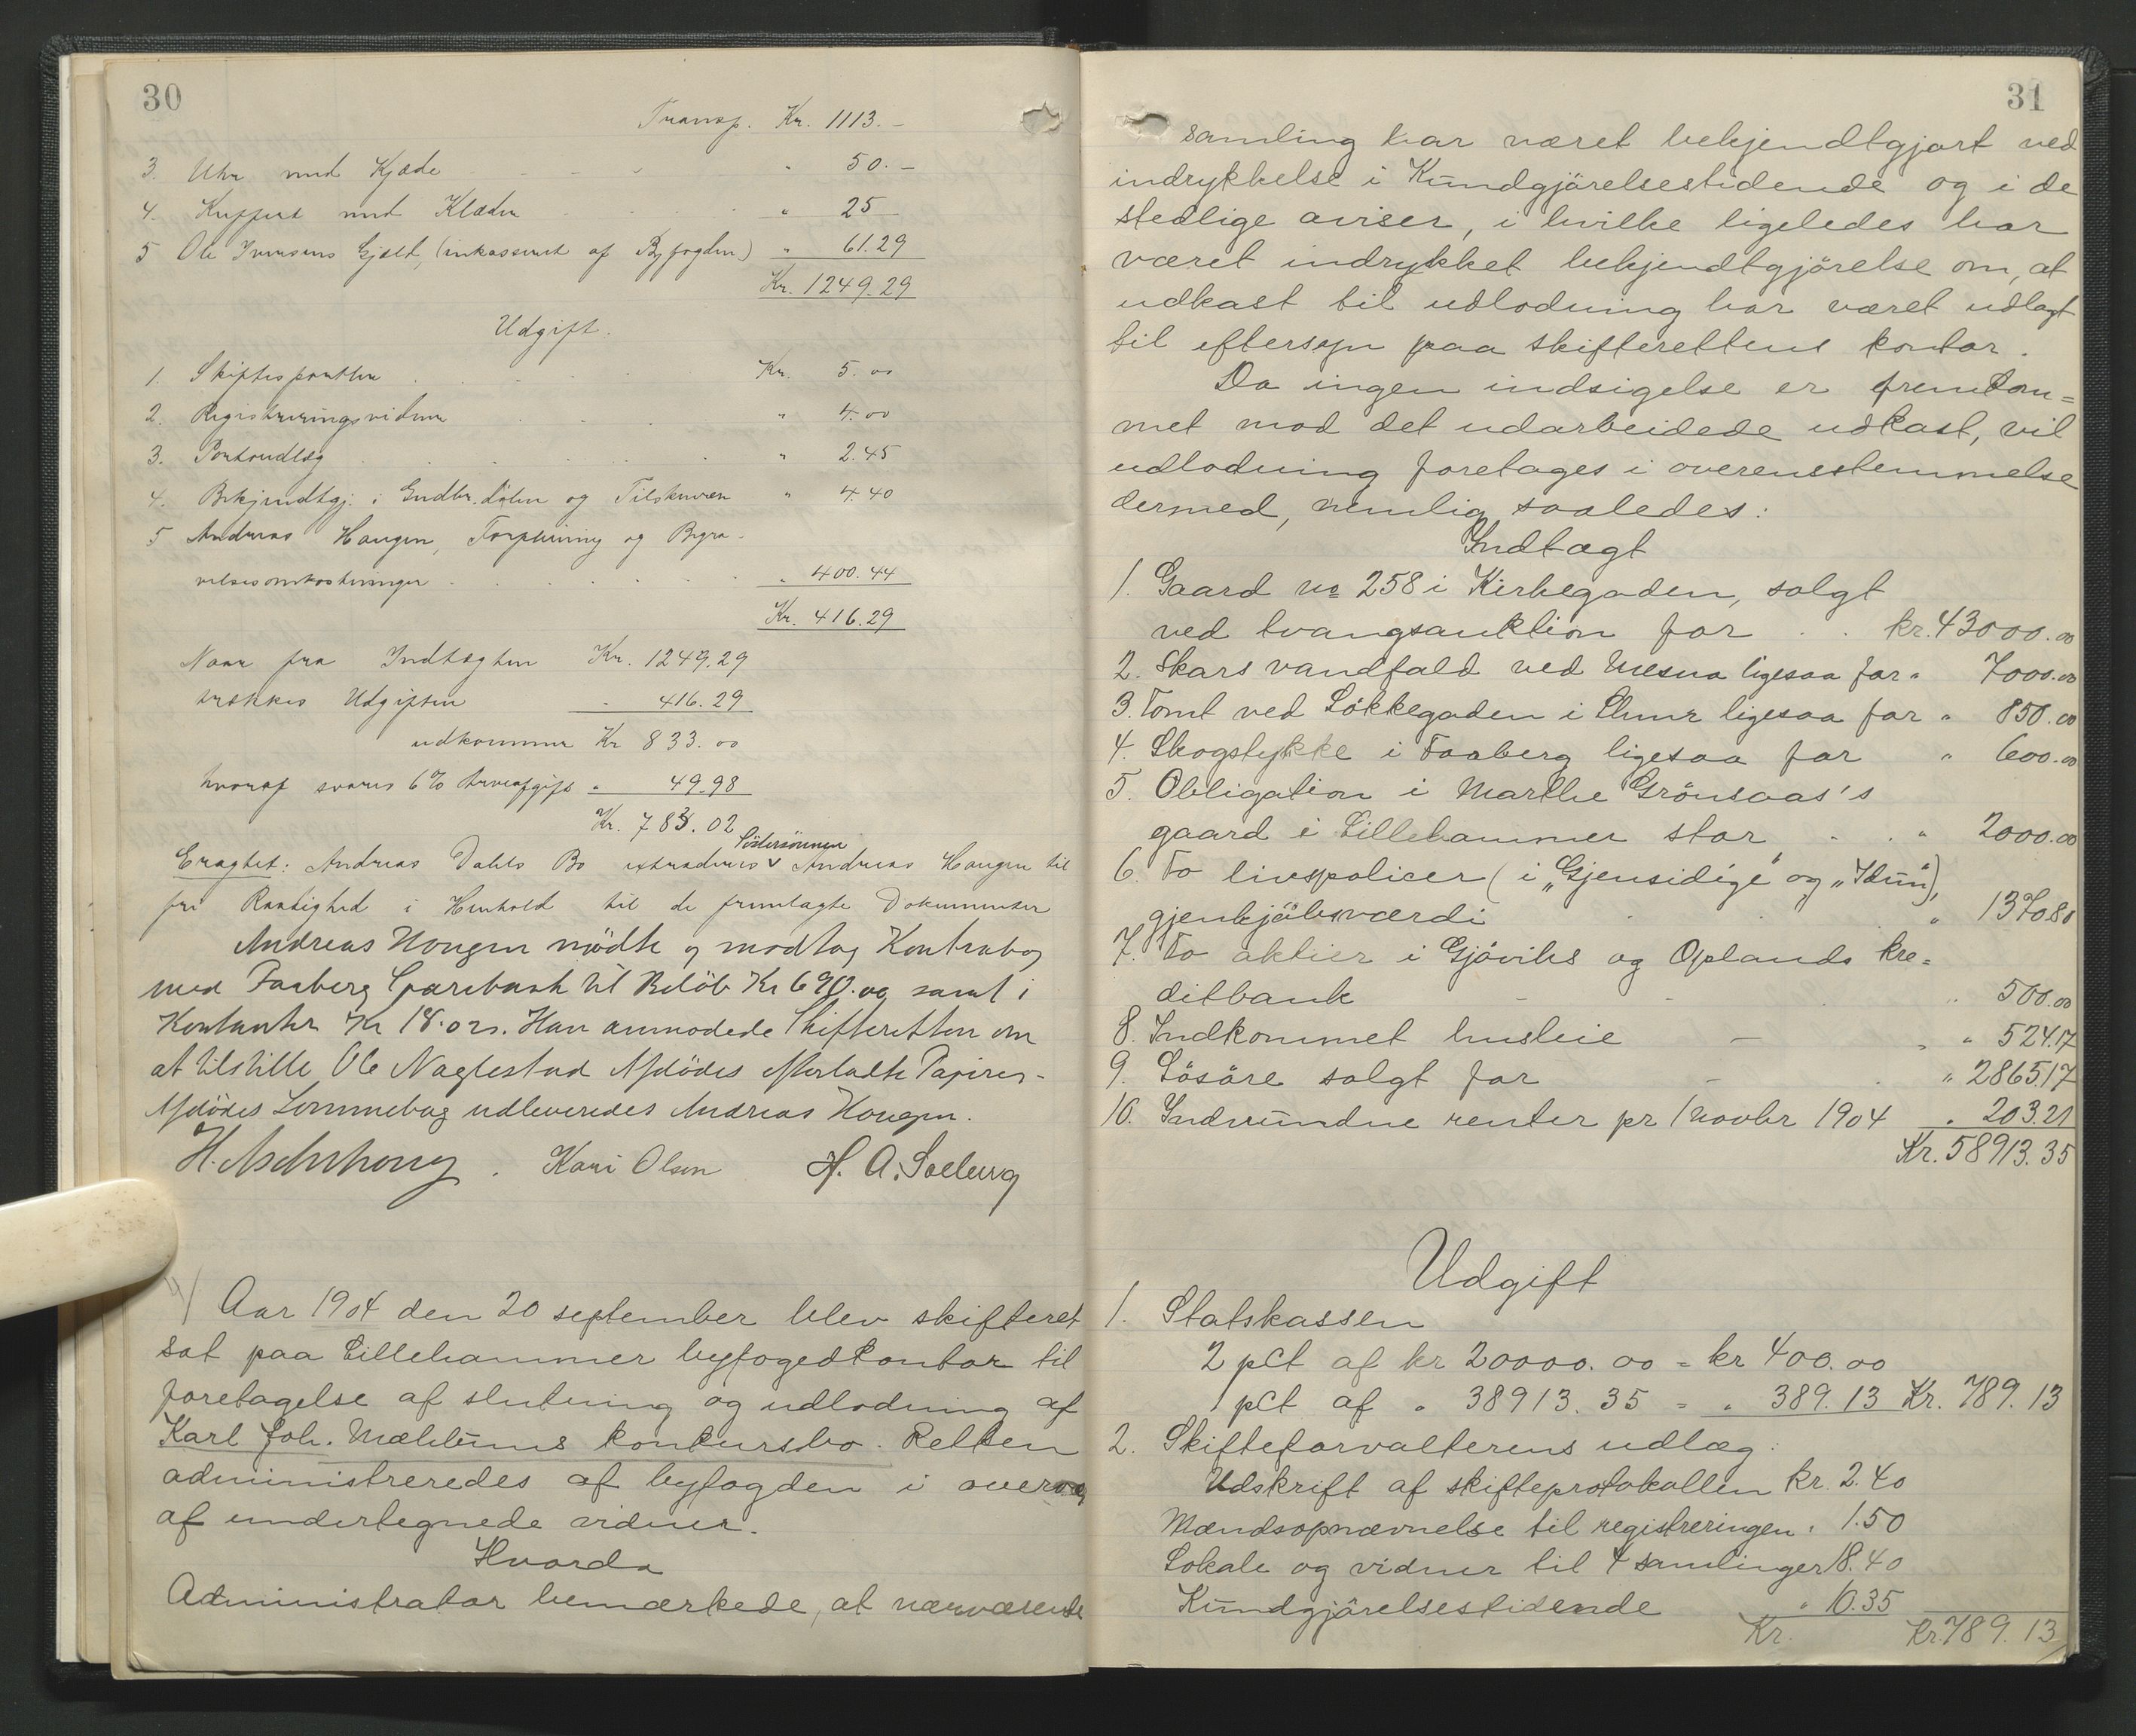 30
Transp. Kr. 1113.-
3. Uhr med Kjæde " 50.-
4. Kuffert med Klæder " 25
5 Ole Iversens Gjæld, (inkasseret af Byfogden) " 61.29
Kr. 1249.29
Udgift.
1. Skifteprotten Kr. 5.00
2. Registreringsvidner " 4.00
3. Portoudlæg " 2.45
4. Bekjendtgj. i Gudbr.dölen og Tilskueren " 4.40
5 Andreas Haugen, Forpleining og Begra-
velsesomkostninger " 400.44
Kr. 416.29
Naar fra Indtægten Kr. 1249.29
trækkes Udgiften " 416.29
udkommer Kr 833.00
hvoraf svares 6% Arveafgift " 49.98
Kr. 783.02
Söstersönnen
Eragtet: Andreas Dahls Bo extraderes v Andreas Haugen til
fri Raadighed i Henhold til de fremlagte Dokumenter
Andreas Haugen mödte og modtog Kontrabog
med Faaberg Sparebank til Belöb Kr 690.00 samt i
Kontanter Kr 18.02. Han anmodede Skifteretten om
at tilstille Ole Naglestad Afdödes efterladte Papirer.
Afdödes Lommebog udleveredes Andreas Haugen.
H. Aschehoug. Kari Olsen H. A. Solberg
Aar 1904 den 20 september blev skifteret
sat paa Lillehammer byfogedkontor til
foretagelse af slutning og udlodning af
Karl Joh. Mæhlums konkursbo. Retten
administreredes af byfogden i overvær
af undertegnede vidner.
Hvorda
Administrator bemærkede, at nærværende
31
samling har været bekjendtgjort ved
indrykkelse i Kundgjörelsestidende og i de
stedlige aviser, i hvilke ligeledes har
været indrykket bekjendtgjörelse om, at
udkast til udlodning har været udlagt
til eftersyn paa skifterettens kontor.
Da ingen indsigelse er fremkom=
met mod det udarbeidede udkast, vil
udlodning foretages i overensstemmelse
dermed, nemlig saaledes:
Indtægt
1. Gaard no 258 i Kirkegaden, solgt
ved tvangsauktion for . . kr. 43000.00
2. Skars vandfald ved Mesna ligesaa for " 7000.00
3. Tomt ved Lökkegaden i Lhmr ligesaa for " 850.00
4. Skogstykke i Faaberg ligesaa for " 600.00
5. Obligation i Marthe Grönsaas's
gaard i Lillehammer stor . . " 2000.00
6. To livspolicer (i „Gjensidige" og „Idun"),
gjenkjöbsværdi " 1370.80
7. To aktier i Gjöviks og Oplands kre=
ditbank " 500.00
8. Indkommet husleie " 524.17
9. Lösöre solgt for " 2865.17
10. Indvundne renter pr 1 novbr 1904 " 203.21
Kr. 58913.35
Udgift
1. Statskassen
2 pCt af kr 20000.00 = kr 400.00
1 pCt af " 38913.35 = " 389.13 Kr. 789.13
2. Skifteforvalterens udlæg:
Udskrift af skifteprotokollen kr. 2.40
Mændsopnævnelse til registreringen " 1.50
Lokale og vidner til 4 samlinger 18.40
Kundgjörelsestidende " 10.35
Kr. Kr. 789.13